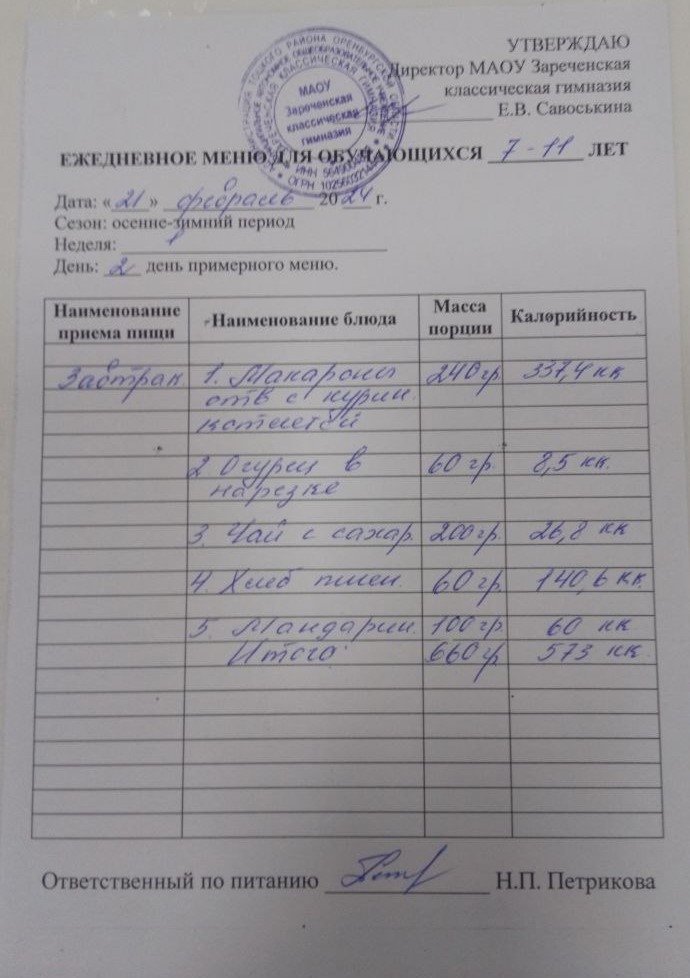 УТВЕРЖДАЮ
Директор МАОУ Зареченская
классическая гимназия
Е.В. Савоськина
МАОУ
Зареченская
классическая
гимназия
ЕЖЕДНЕВНОЕ МЕНЮ ДЛЯ ОБУЧАЮЩИХСЯ 7-11 ЛЕТ
Дата: «21» февраль 2024 г.
Сезон: осенне-зимний период
Неделя: 1
День: 2 день примерного меню.
Наименование приема пищи Наименование блюда Масса порции Калорийность
Завтрак 1. Макароны 240гр 337,4 кк
отв с курин.
котлетой
2 Огурец в 60 гр. 8,5 кк.
нарезке
3. Чай с сахар. 200гр. 26,8 кк
4. Хлеб пшен. 60 гр. 140,6 кк.
5. Мандарин. 100гр. 60 кк
Итого: 660гр 573 кк.
Ответственный по питанию Н.П. Петрикова